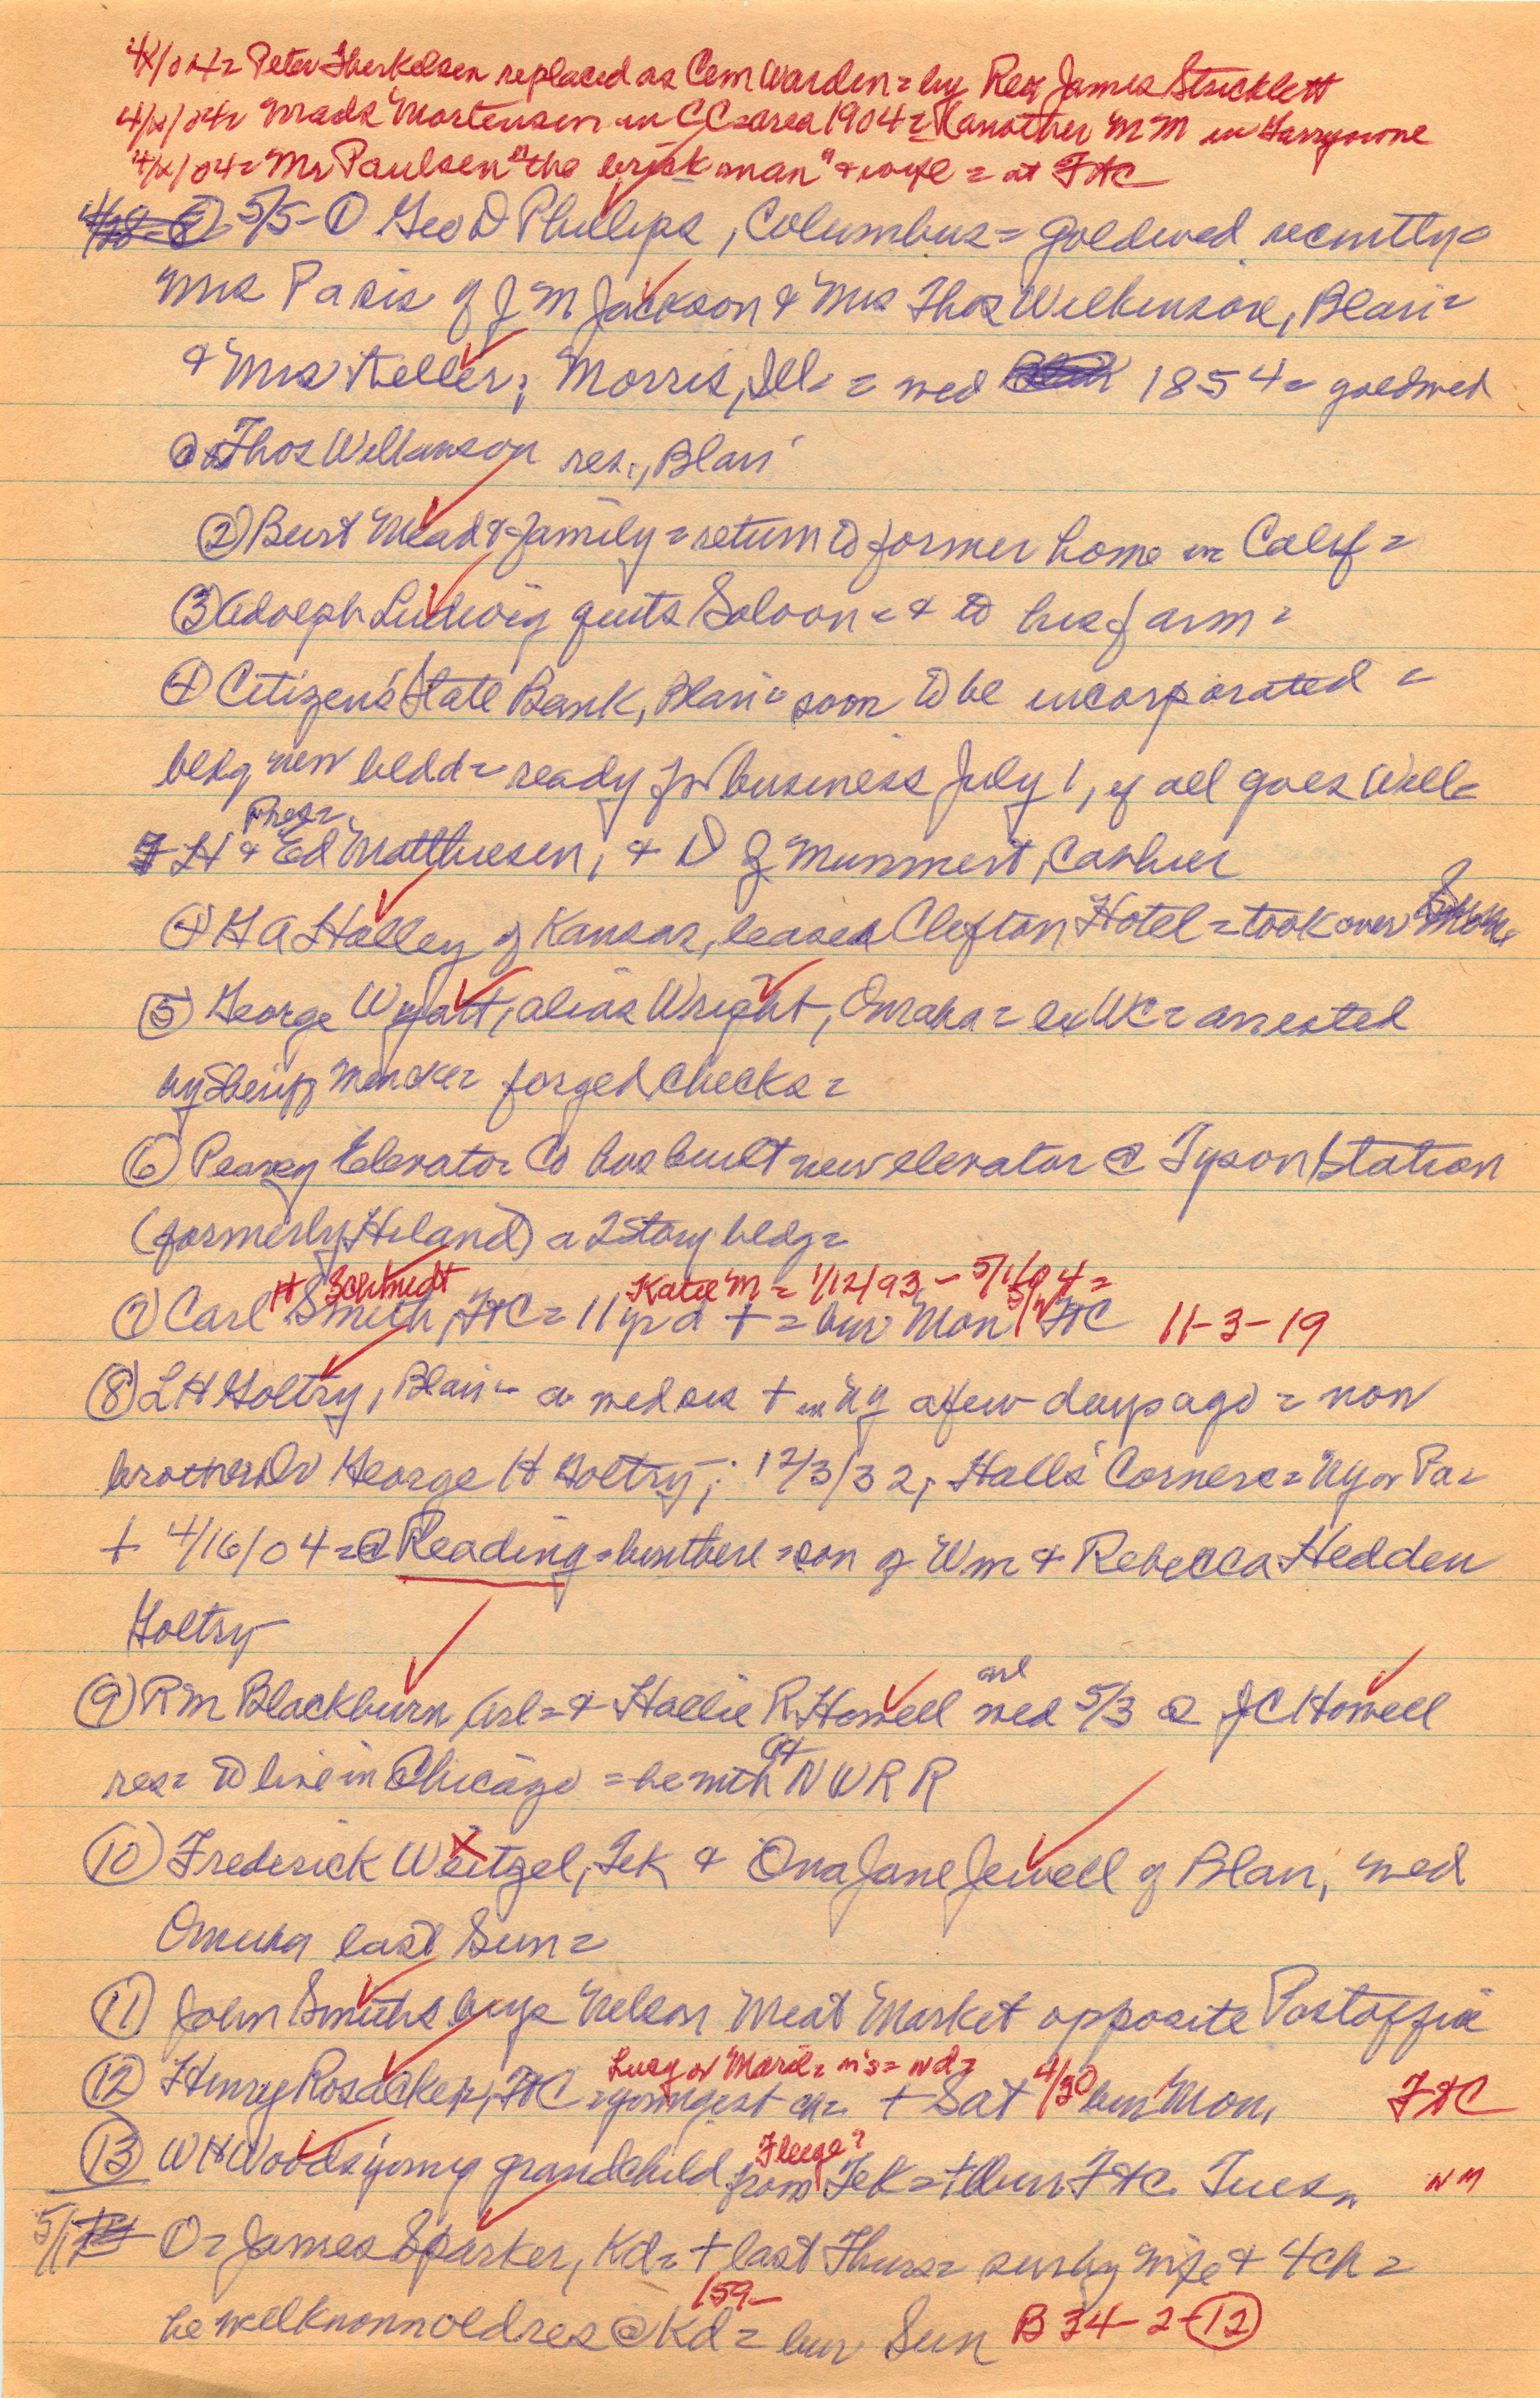 4/x/04= Peter Therkelsen replaced as Cem Warden= by Rex James Stricklett
4/x/04= Mads Mortensen in CC=area 1904= (another MM in Harry
4/x/04= Mr Paulsen "the brick man" & wife = at FtC
5/5- ① Geo D Phillips, Columbus= goldwed recently=
Mrs P a sis of J M Jackson & Mrs Thos Wilkinson, Blair=
& Mrs Keller, Morris, Ill= = wed 1854= goldwed
@ Thos Wilkinson res., Blair
② Burt Mead & family = return to former home in Calif =
③ Adolph Ludwig quits Saloon = & to his farm =
④ Citizen's State Bank, Blair= soon to be incorporated =
bldg new bldd= ready for business July 1, if all goes well=
Pres=
F H & Ed Matthiesen, & D Z Mummert, Cashier
④ G A Holley of Kansas, leased Clifton Hotel = took over
⑤ George Wyatt, alias Wright, Omaha = exWC= arrested
by Sheriff Mencke= forged checks =
⑥ Peavey Elevator Co has built new elevator @ Tyson Station
(formerly Hiland) a 2 story bldg=
H Schmidt Katie M = 1/12/93 - 5/1/04 =
⑦ Carl Smith, FtC = 11 yr d + = bur Mon 5/2 FtC 11-3-19
⑧ L H Goltry, Blair= a wed sis + in NY a few days ago = now
brother Dr George H Goltry; 12/3/32, Halls' Corners = NY or Pa=
+ 4/16/04 = @ Reading = bur there = son of Wm & Rebecca Hedden
Goltry
⑨ R M Blackburn, Arl = & Hallie R Howell Arl wed 5/3 @ J C Howell
res= to live in Chicago = he with C&NWRR
⑩ Frederick Weitzel, Tek & Ona Jane Jewell of Blair, wed
Omaha last Sun =
⑪ John Smith buys Nelson Meat Market opposite Postoffice
⑫ Henry Rosacker, FtC = youngest ch= + Sat 4/30 bur Mon, FtC
⑬ W H Woods young grandchild from Tek = + bur FtC Tues= NM
Fleege?
① = James S Parker, Kd= + last Thurs= sur by wife & 4 ch =
159-
he well known old res @ Kd = bur Sun B 34-2-⑫